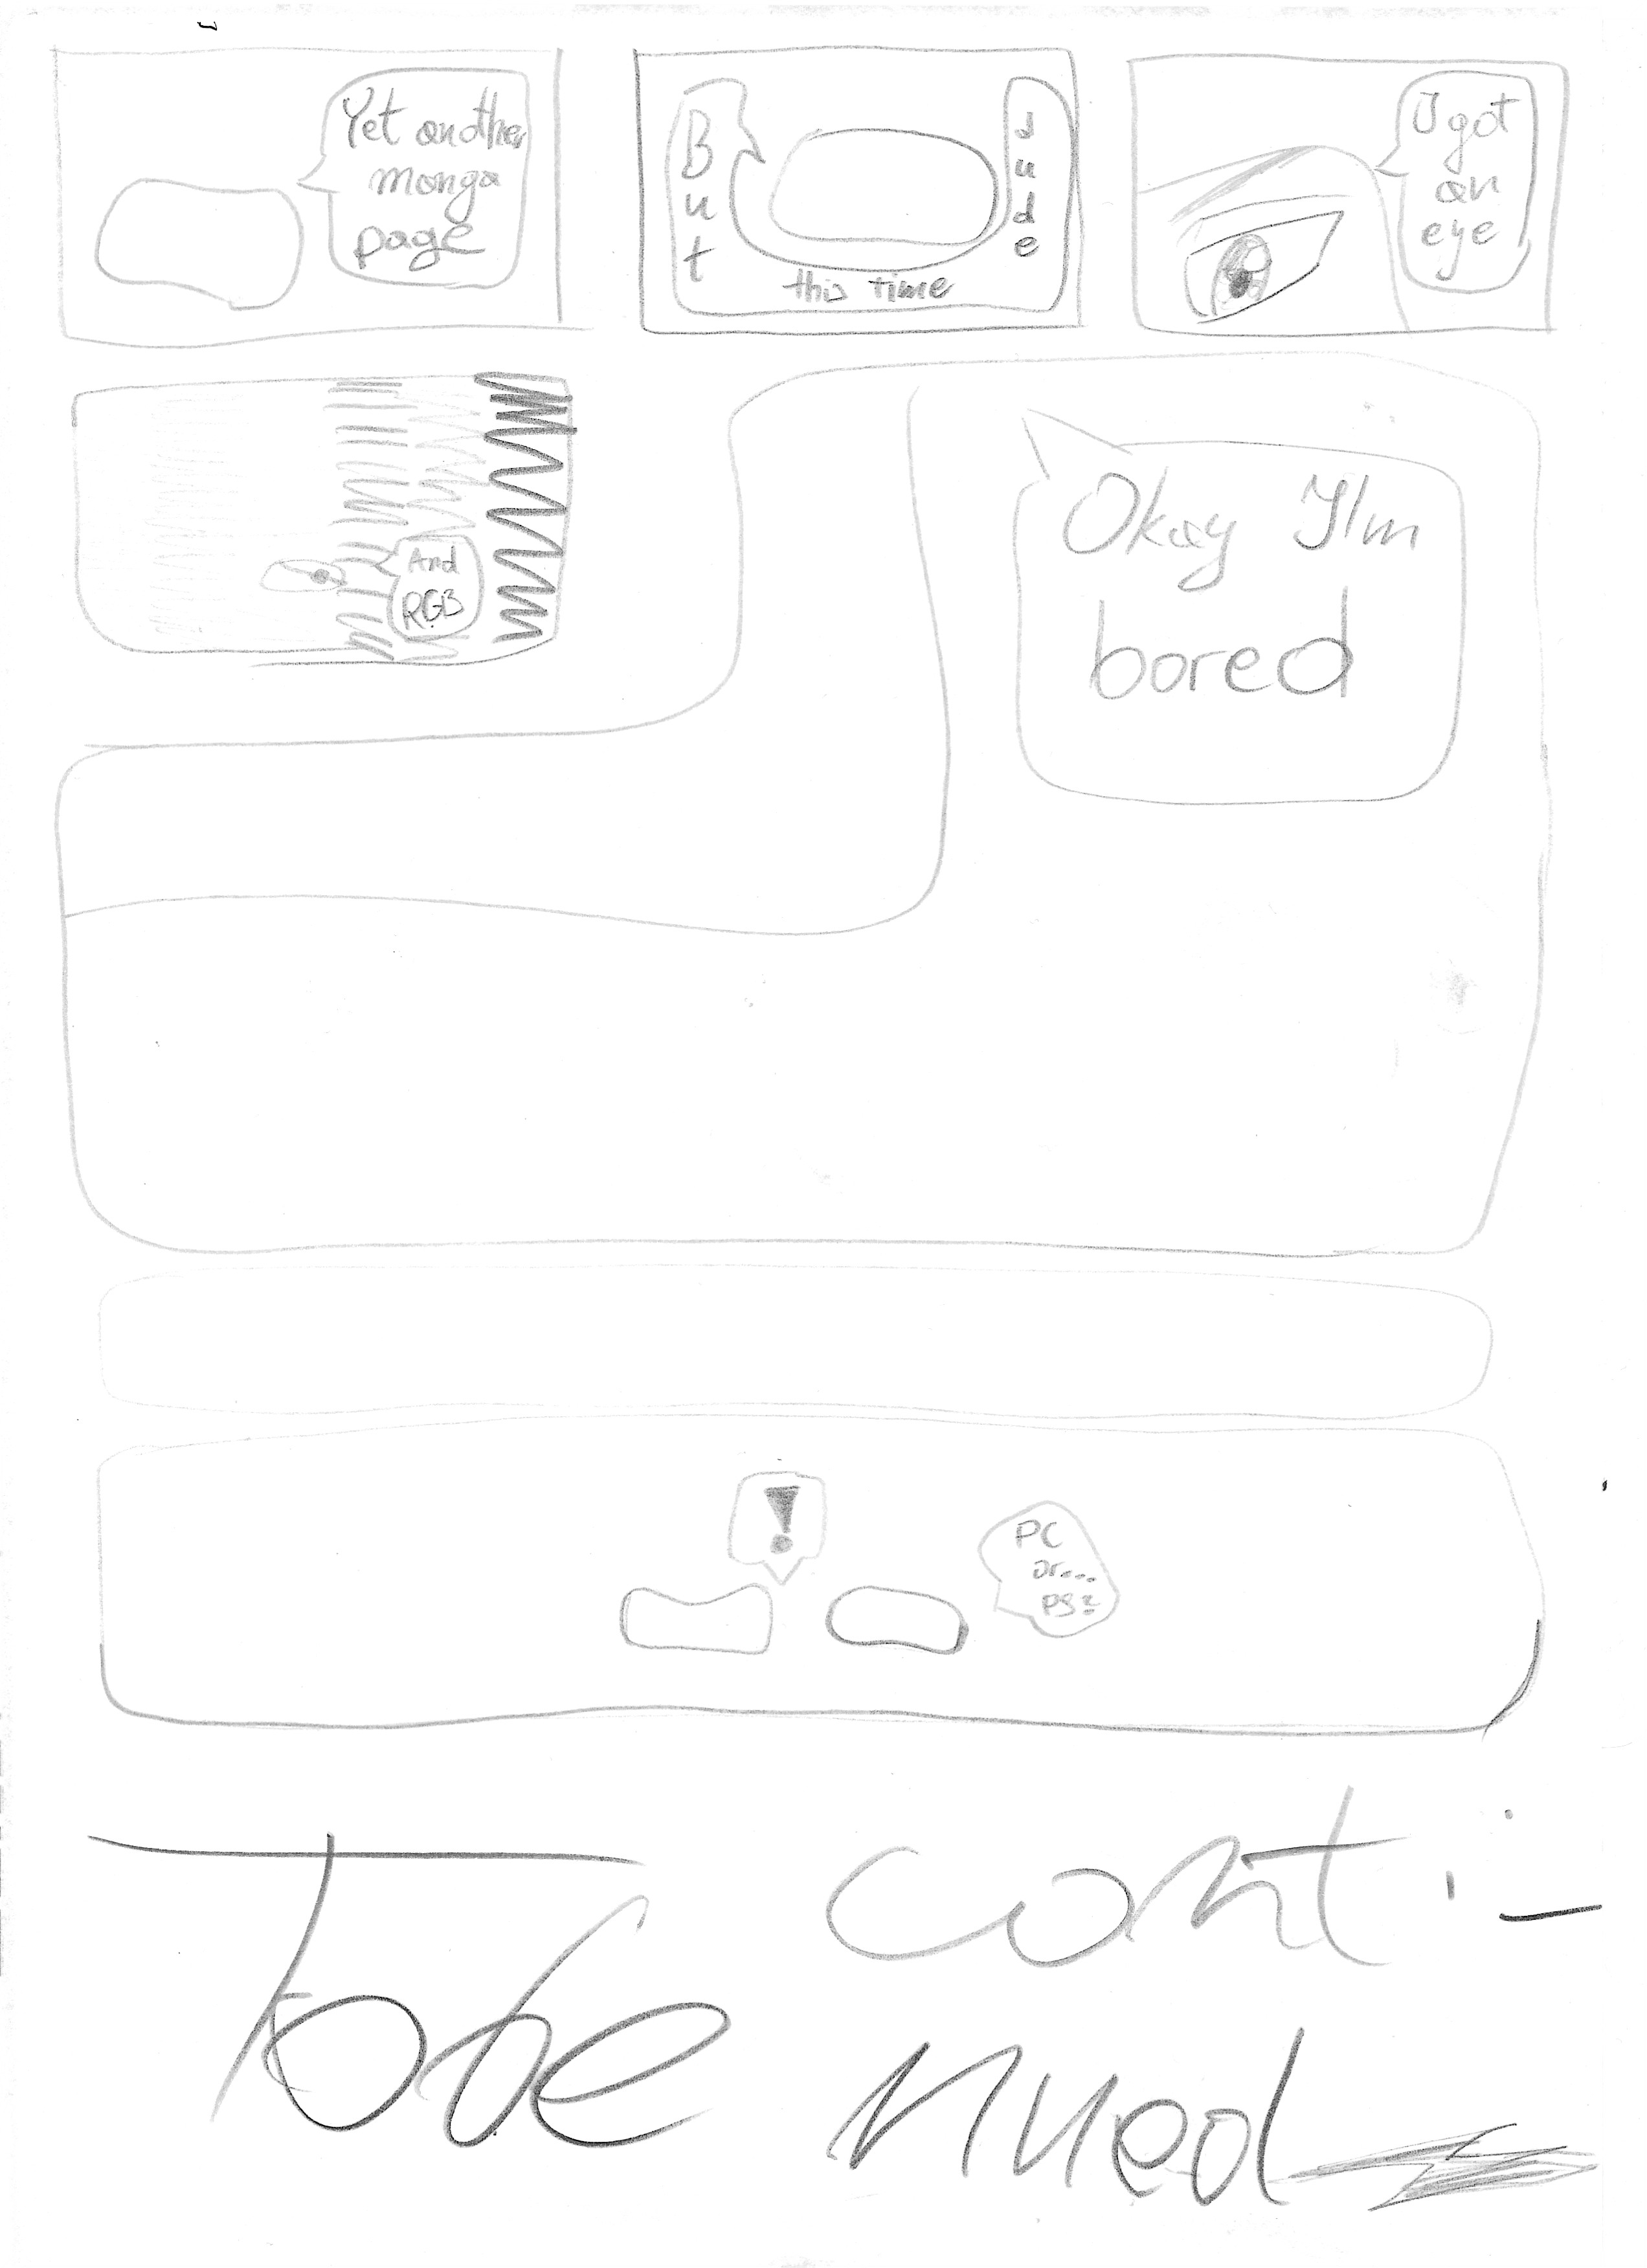 Yet another
manga
page
But
this time
dude
I got
an
eye
And
RGB
Okay I'm
bored
!
PC
or...
PS?
To be conti-
nued